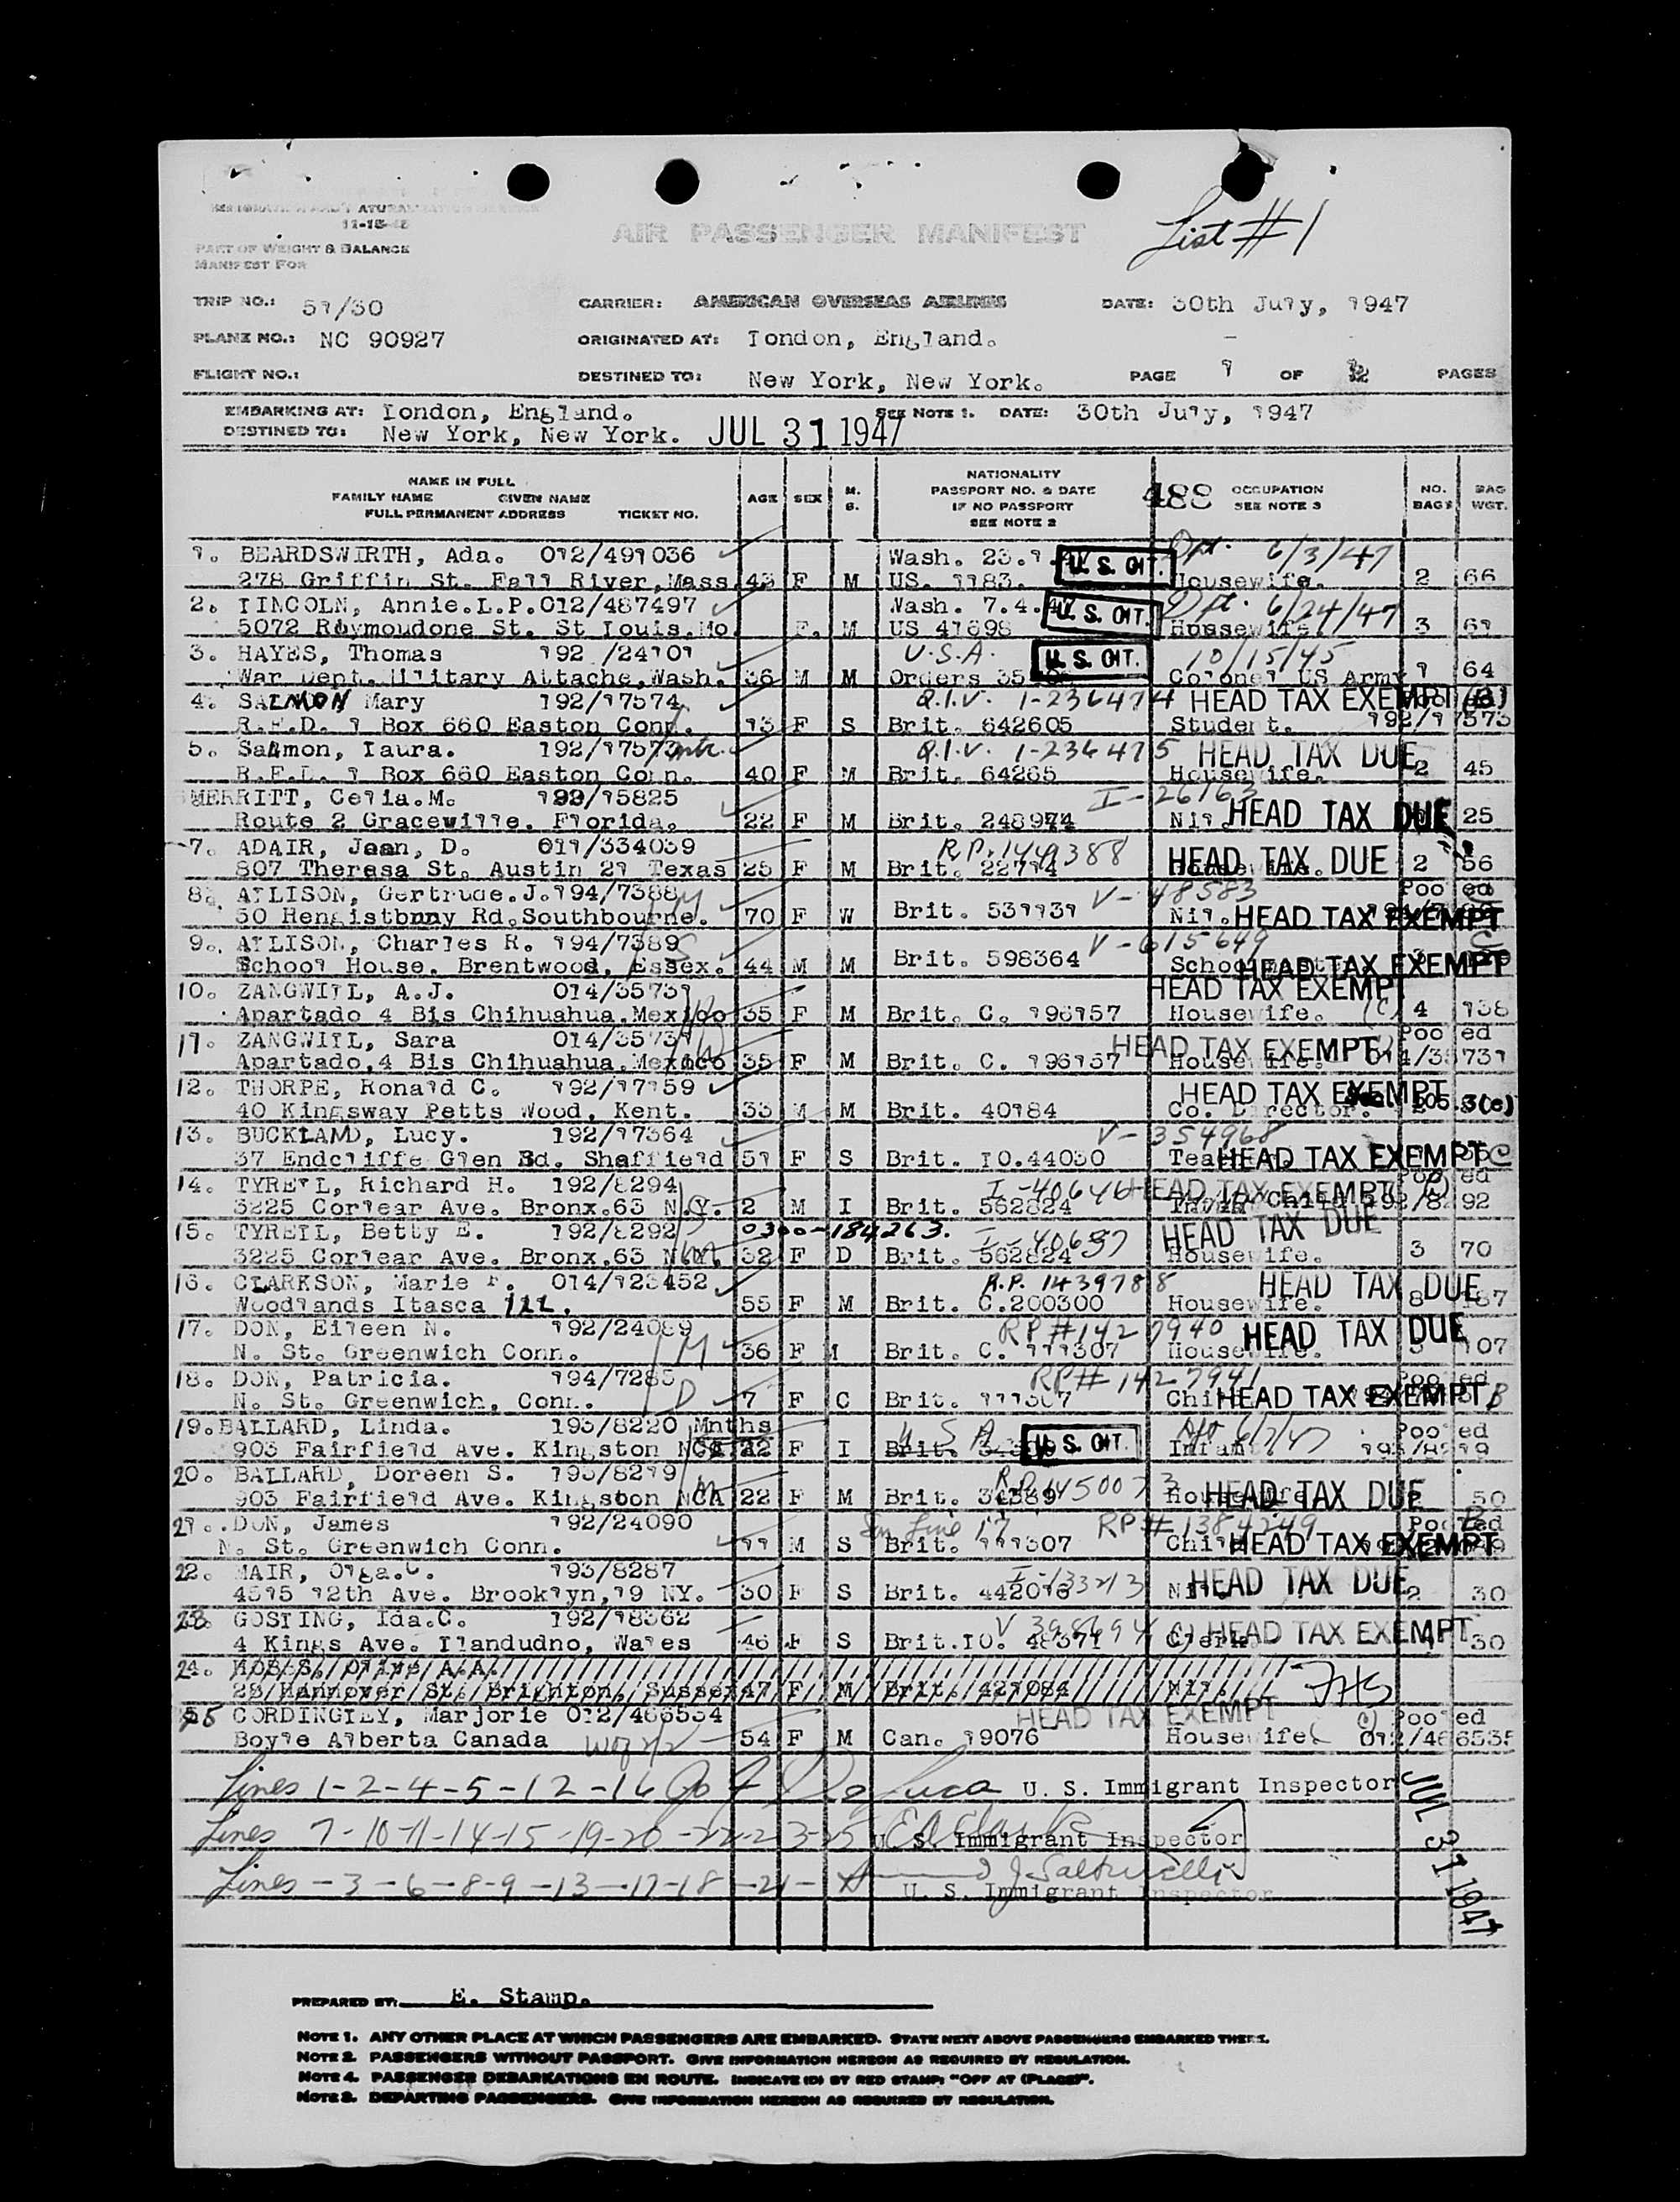 11-15-45
PART OF WEIGHT & BALANCE
MANIFEST FOR
AIR PASSENGER MANIFEST
List #1
TRIP NO.: 51/30 CARRIER: AMERICAN OVERSEAS AIRLINES DATE: 30th July, 1947
PLANE NO.: NC 90927 ORIGINATED AT: London, England.
FLIGHT NO.: DESTINED TO: New York, New York. PAGE 1 OF PAGES
EMBARKING AT: London, England. SEE NOTE 1. DATE: 30th July, 1947
DESTINED TO: New York, New York. JUL 31 1947
NAME IN FULL
FAMILY NAME GIVEN NAME
FULL PERMANENT ADDRESS TICKET NO. AGE SEX M. S. NATIONALITY PASSPORT NO. & DATE IF NO PASSPORT SEE NOTE 2 488 OCCUPATION SEE NOTE 3 NO. BAGS BAG WGT.
1. BEARDSWIRTH, Ada. 012/491036 Wash. 23.1. U.S. CIT. Dpt. 6/3/47
278 Griffin St. Fall River, Mass. 43 F M US. 1183. Housewife. 2 66
2. LINCOLN, Annie.L.P. 012/487497 Wash. 7.4. U.S. CIT. Dpt. 6/24/47
5072 St. St Louis. Mo. F. M US 41698 Housewife. 3 61
3. HAYES, Thomas 192 /24101 U.S.A. U.S. CIT. 10/15/45
War Dept. Military Attache, Wash. 36 M M Orders Colonel US Army 1 64
4. SALMON Mary 192/17574 Q.I.V. 1-236474 HEAD TAX EXEMPT (B)
R.F.D. 1 Box 660 Easton Conn. 13 F S Brit. 642605 Student. 192/17573
5. Salmon, Laura. 192/17573 Q.I.V. 1-236475 HEAD TAX DUE
R.F.D. 1 Box 660 Easton Conn. 40 F M Brit. 64265 Housewife. 2 45
MERRITT, Celia.M. 192/15825 I-26163
Route 2 Gracewille. Florida. 22 F M Brit. 248974 Nil. HEAD TAX DUE 25
7. ADAIR, Jean, D. 011/334039 R.P. 1449388
807 Theresa St. Austin 21 Texas 25 F M Brit. 22714 HEAD TAX DUE 2 56
8. ALLISON, Gertrude.J. 194/7388 M V-48583 Pooled
50 Hengistbury Rd. Southbourne. 70 F W Brit. 531131 Nil. HEAD TAX EXEMPT
9. ALLISON, Charles R. 194/7389 S V-615649
School House. Brentwood, Essex. 44 M M Brit. 598364 HEAD TAX EXEMPT
10. ZANGWILL, A.J. 014/35731 HEAD TAX EXEMPT
Apartado 4 Bis Chihuahua. Mexico 35 F M Brit. C. 196157 Housewife. (C) 4 138
11. ZANGWILL, Sara 014/35731 HEAD TAX EXEMPT Pooled
Apartado, 4 Bis Chihuahua. Mexico 35 F M Brit. C. 196157 Housewife. 014/35731
12. THORPE, Ronald C. 192/17159 HEAD TAX EXEMPT
40 Kingsway Petts Wood, Kent. 33 M M Brit. 40184 Co. Director. 3(e)
13. BUCKLAND, Lucy. 192/17364 V-354968
37 Endcliffe Glen Rd. Shaffield 51 F S Brit. IO.44030 HEAD TAX EXEMPT C
14. TYRELL, Richard H. 192/8294 I-40646 HEAD TAX EXEMPT Pooled
3225 Corlear Ave. Bronx.63 N.Y. 2 M I Brit. 562824 Child 192/8292
15. TYRELL, Betty E. 192/8292 0300-184263. I-40637 HEAD TAX DUE
3225 Corlear Ave. Bronx.63 N.Y. 32 F D Brit. 562824 Housewife. 3 70
16. CLARKSON, Marie 014/123452 R.P. 1439788 HEAD TAX DUE
Woodlands Itasca Ill. 55 F M Brit. C.200300 Housewife. 8
17. DON, Eileen N. 192/24089 RP #1427940 HEAD TAX DUE
N. St. Greenwich Conn. M 36 F M Brit. C. 111307 Housewife. 107
18. DON, Patricia. 194/7285 RP# 1427941 Pooled
N. St. Greenwich, Conn. D 7 F C Brit. 111307 HEAD TAX EXEMPT B
19. BALLARD, Linda. 193/8220 Mnths USA U.S. CIT. 6/7/47 Pooled
903 Fairfield Ave. Kingston F I Brit. Infant 193/8219
20. BALLARD, Doreen S. 193/8219 R.P. 1450073
903 Fairfield Ave. Kingston NCA 22 F M Brit. HEAD TAX DUE 50
21. DON, James 192/24090 Line 17 RP# 1384249 Pooled
N. St. Greenwich Conn. 11 M S Brit. 111307 HEAD TAX EXEMPT
22. MAIR, Olga.C. 193/8287 I-133213 HEAD TAX DUE
4515 12th Ave. Brooklyn, 19 NY. 30 F S Brit. 442016 Nil 2 30
23. GOSLING, Ida.C. 192/18362 V 398694 HEAD TAX EXEMPT
4 Kings Ave. Llandudno, Wales 46 F S Brit.IO. 48371 Clerk 30
24. A.A.
28 Hannover St. Brighton, Sussex 47 F M Brit. 421084 Nil.
25 CORDINGLEY, Marjorie 012/466534 HEAD TAX EXEMPT Pooled
Boyle Alberta Canada 54 F M Can. 19076 Housewife 012/466535
Lines 1-2-4-5-12-16 U. S. Immigrant Inspector
Lines 7-10-11-14-15-19-20-22-23-25 U. S. Immigrant Inspector
Lines -3-6-8-9-13-17-18-21-
U. S. Immigrant Inspector
JUL 31 1947
PREPARED BY: E. Stamp.
NOTE 1. ANY OTHER PLACE AT WHICH PASSENGERS ARE EMBARKED. STATE NEXT ABOVE PASSENGERS EMBARKED THERE.
NOTE 2. PASSENGERS WITHOUT PASSPORT. GIVE INFORMATION HEREON AS REQUIRED BY REGULATION.
NOTE 4. PASSENGER DEBARKATIONS EN ROUTE. INDICATE (D) BY RED STAMP: "OFF AT (PLACE)".
NOTE 3. DEPARTING PASSENGERS. GIVE INFORMATION HEREON AS REQUIRED BY REGULATION.